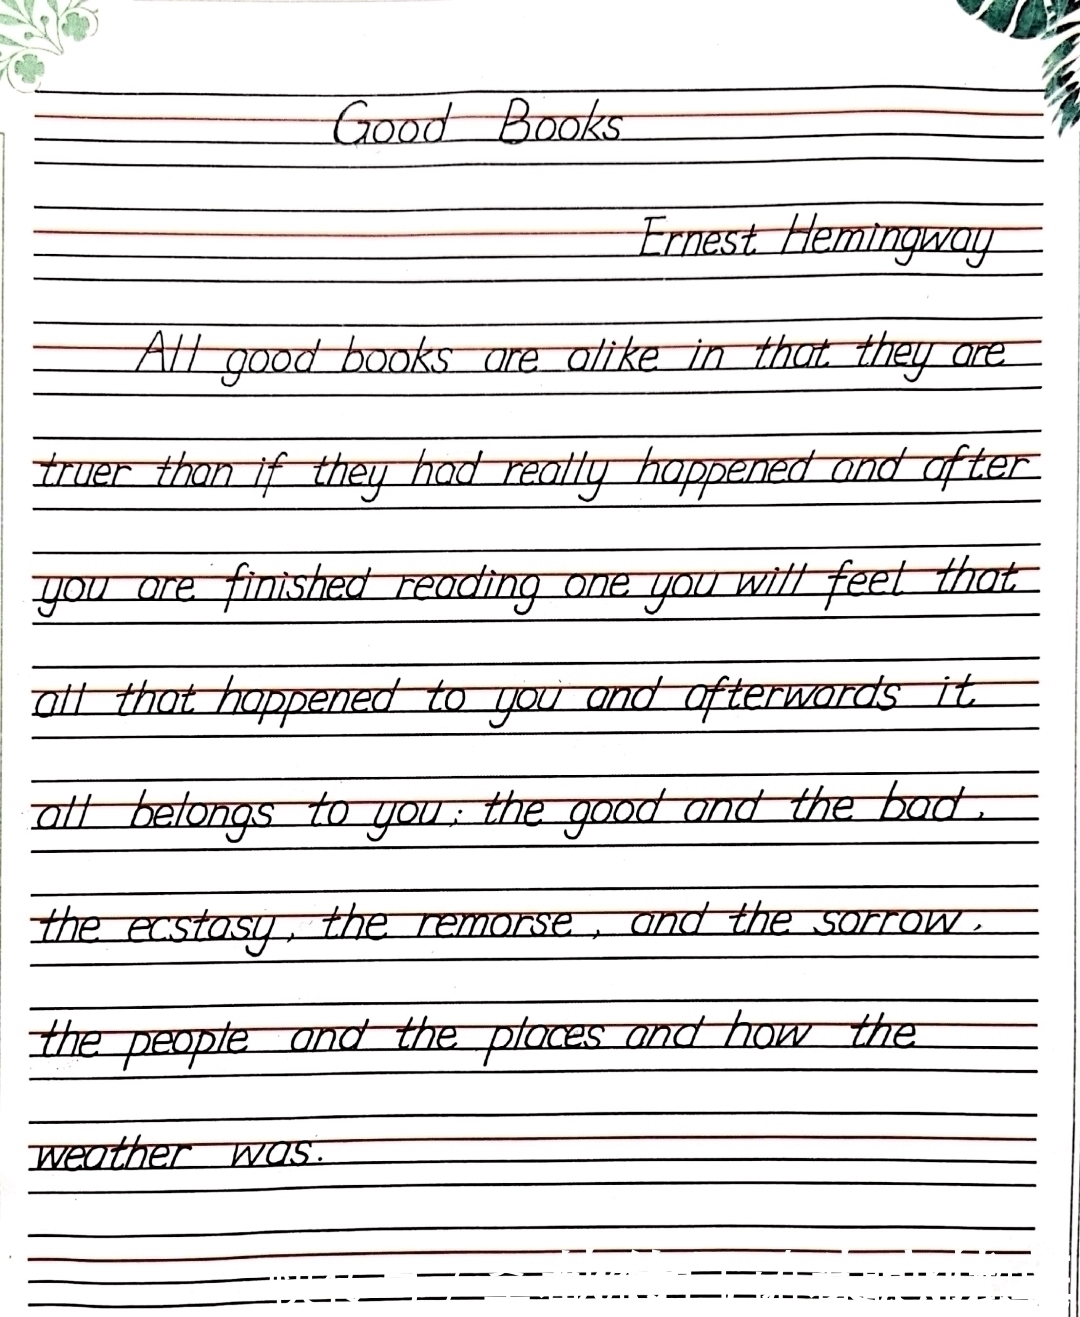 Good Books
Ernest Hemingway
All good books are alike in that they are
truer than if they had really happened and after
you are finished reading one you will feel that
all that happened to you and afterwards it
all belongs to you; the good and the bad,
the ecstasy, the remorse, and the sorrow,
the people and the places and how the
weather was.